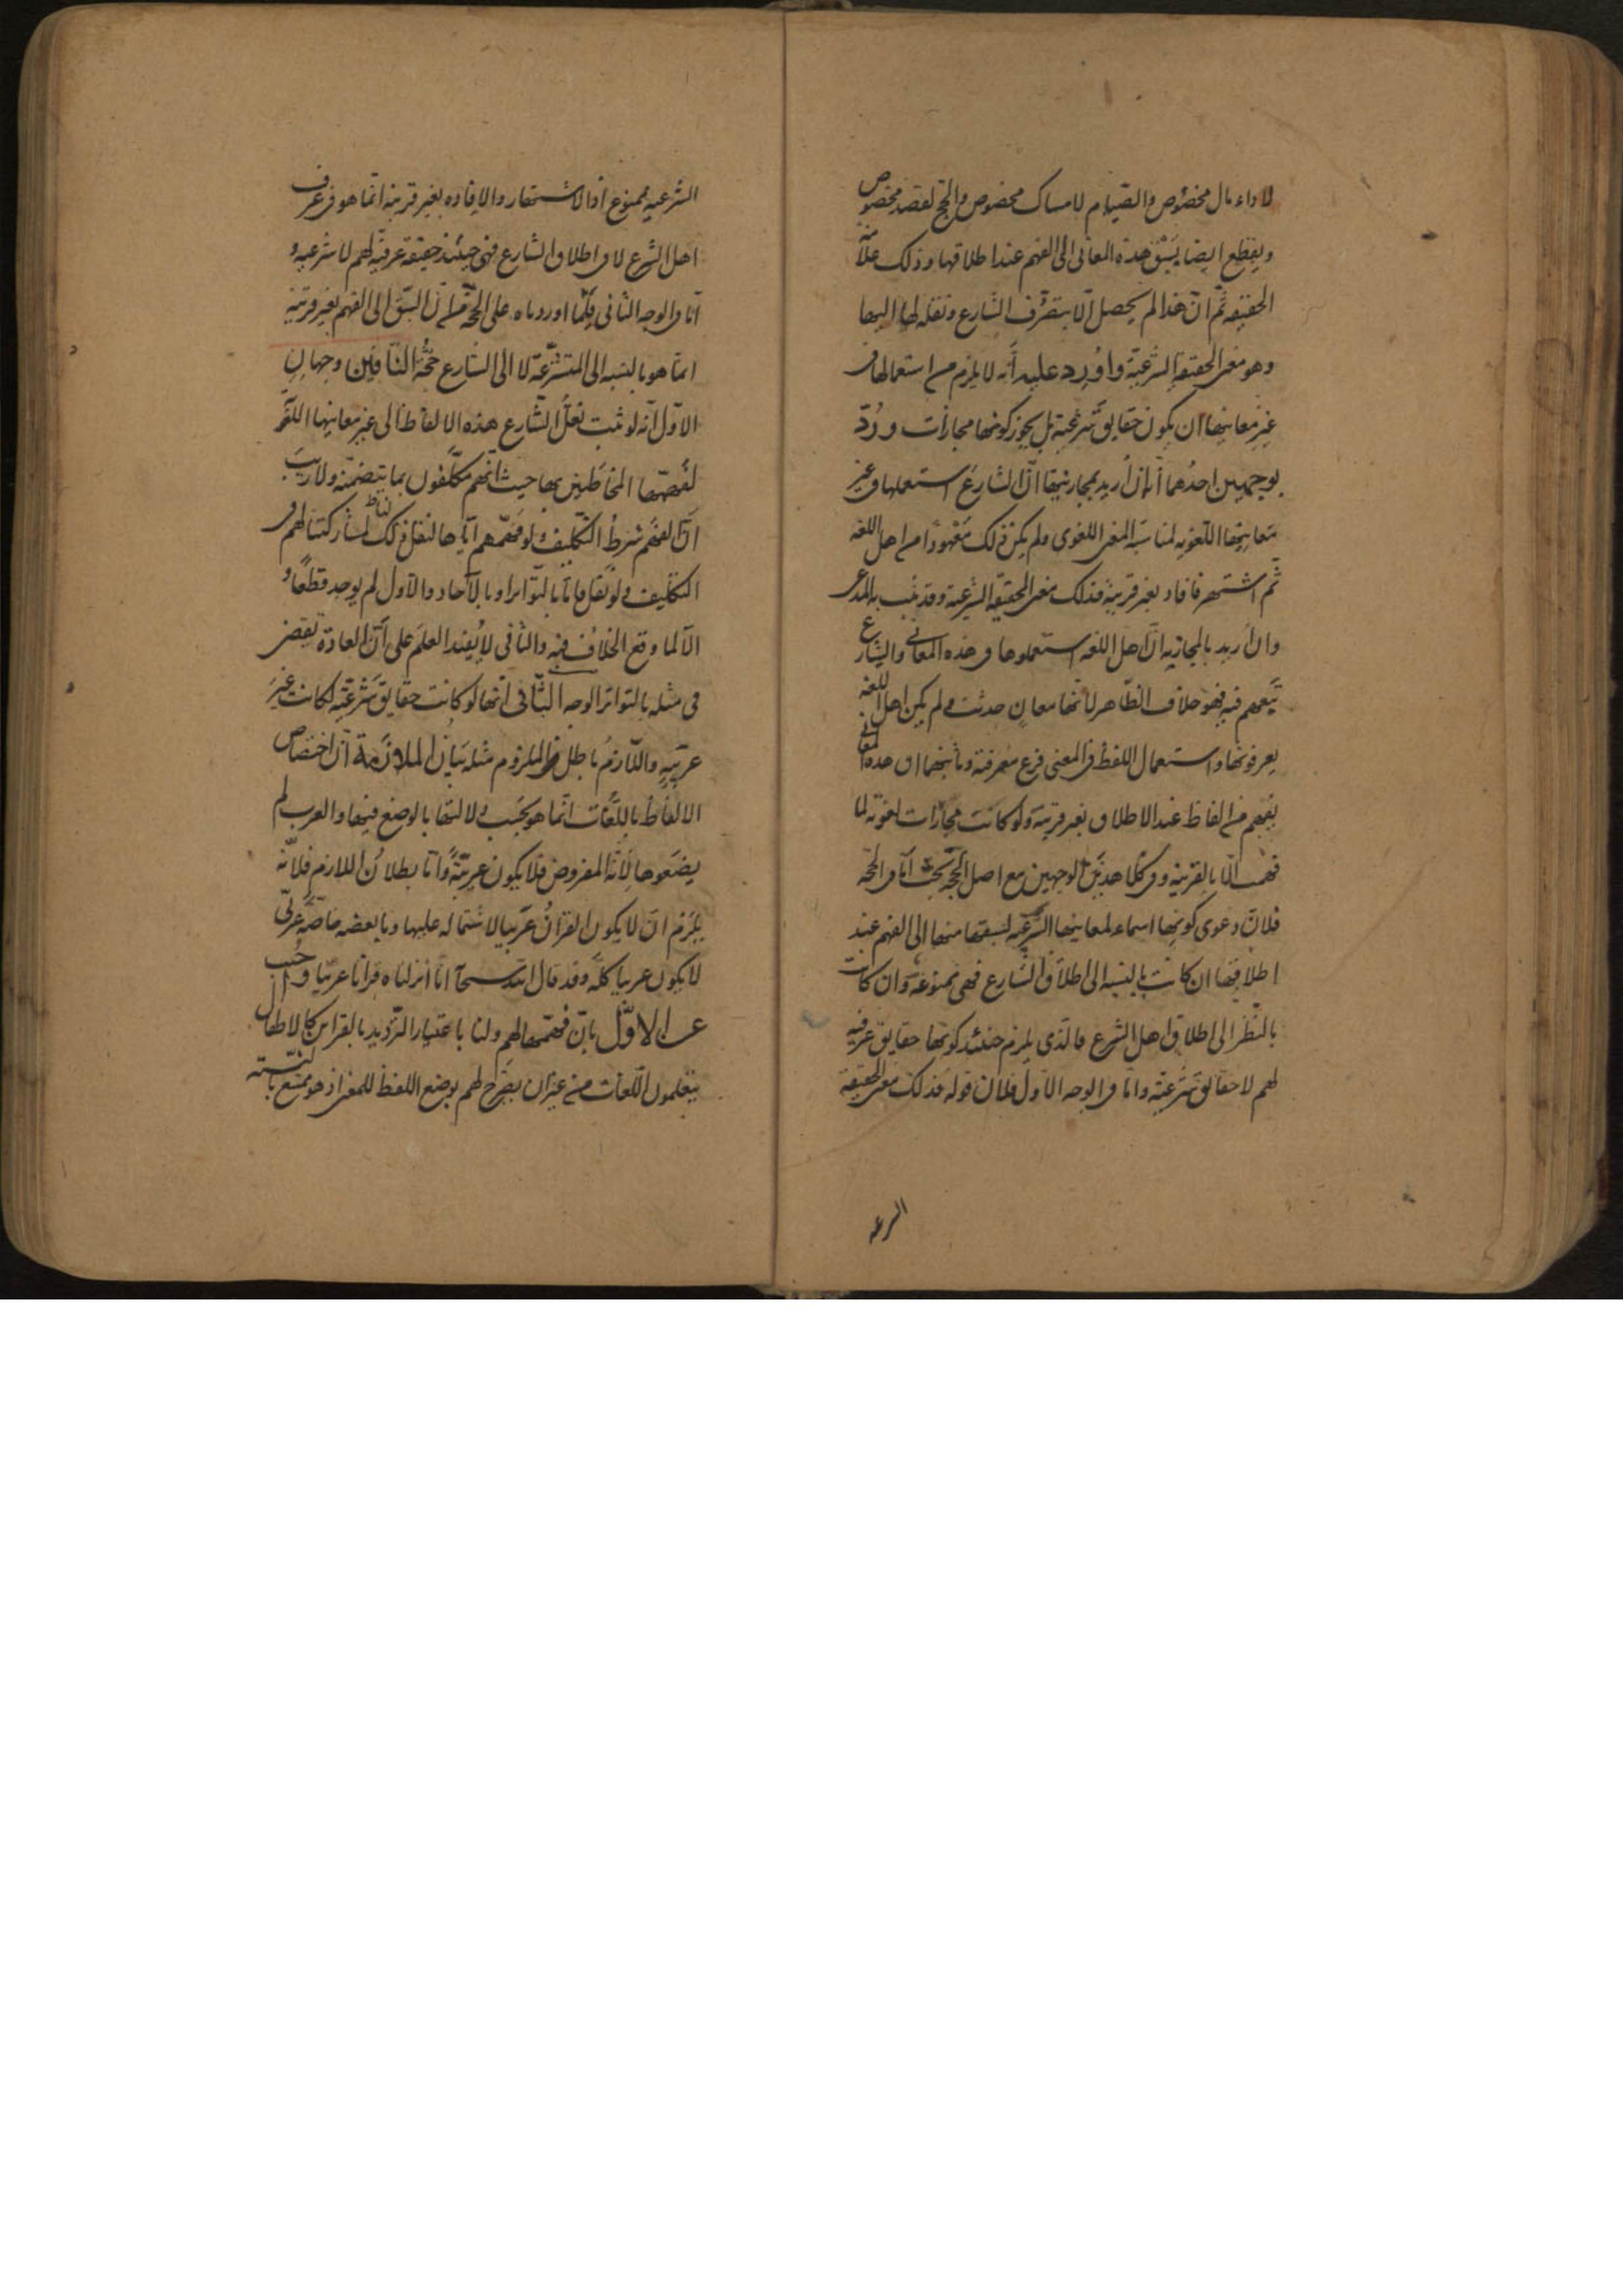 لاداء مال مخصوص والصيام لامساك مخصوص والحج لقصد مخصوص
ويقطع ايضا بسبق هذه المعانى الى الفهم عند اطلاقها وذلك علامة
الحقيقه ثم ان هذا لم يحصل الا بتصرف الشارع ونقله لها اليها
وهو معنى الحقيقة الشرعية واورد عليه انه لا يلزم من استعمالها فى
غير معانيها ان يكون حقايق شرعية بل يجوز كونها مجازات ورد
بوجهين احدهما انه ان اريد بمجازيتها ان الشارع استعملها فى غير
معانيها اللغويه لمناسبة المعنى اللغوى ولم يكن ذلك معهودا من اهل اللغه
ثم اشتهر فافاد بغير قرينة فذلك معنى الحقيقة الشرعية وقد ثبت المدعى
وان اريد بالمجازيه ان اهل اللغه استعملوها فى هذه المعانى والشارع
تبعهم فيه فهو خلاف الظاهر لانها معان حدثت ولم يكن اهل اللغه
يعرفونها واستعمال اللفظ فى المعنى فرع معرفته وثانيهما ان هذه المعانى
يفهم من الفاظ عند الاطلاق بغير قرينة ولو كانت مجازات لغوية لما
فهمت الا بالقرينه وفى كلا هذين الوجهين مع اصل الحجة بحث اما فى الحجة
فلان دعوى كونها اسماء لمعانيها الشرعيه لسبقها منها الى الفهم عند
اطلاقها ان كانت بالنسبه الى اطلاق الشارع فهى ممنوعة وان كانت
بالنظر الى اطلاق اهل الشرع فالذى يلزم حينئذ كونها حقايق عرفيه
لهم لا حقايق شرعية واما فى الوجه الاول فلان قوله فذلك معنى الحقيقة
الشرعيه
الشرعيه ممنوع اذ الاشتهار والافاده بغير قرينه انما هو فى عرف
اهل الشرع لا فى اطلاق الشارع فهى حينئذ حقيقة عرفيه لهم لا شرعيه و
اما فى الوجه الثانى فلما اوردناه على الحجة من ان السبق الى الفهم بغير قرينة
انما هو بالنسبه الى المتشرعة لا الى الشارع حجة النافين وجهان
الاول انه لو ثبت نقل الشارع هذه الالفاظ الى غير معانيها اللغوية
لفهمها المخاطبين بها حيث انهم مكلفون بما يتضمنه ولا ريب
ان الفهم شرط التكليف ولو فهمهم اياها لنقل ذلك الينا لمشاركتنا لهم فى
التكليف ولو نقل فاما بالتواتر او بالاحاد والاول لم يوجد قطعا و
الا لما وقع الخلاف فيه والثانى لا يفيد العلم على ان العادة تقضى
فى مثله بالتواتر الوجه الثانى انها لو كانت حقايق شرعية لكانت غير
عربيه واللازم باطل فالملزوم مثله بيان الملازمة ان اختصاص
الالفاظ باللغات انما هو بحسب دلالتها بالوضع فيها والعرب لم
يضعوها لانه المفروض فلا يكون عربية واما بطلان اللازم فلانه
يلزم ان لا يكون القرآن عربيا لاشتماله عليها وما بعضه خاصة عربى
لا يكون عربيا كله وقد قال الله سبحانه انا انزلناه قرآنا عربيا واجيب
عن الاول بان فهمها لهم ولنا باعتبار الترديد بالقراين كالاطفال
يتعلمون اللغات من غير ان يصرح لهم بوضع اللفظ للمعنى اذ هو ممتنع بالنسبة